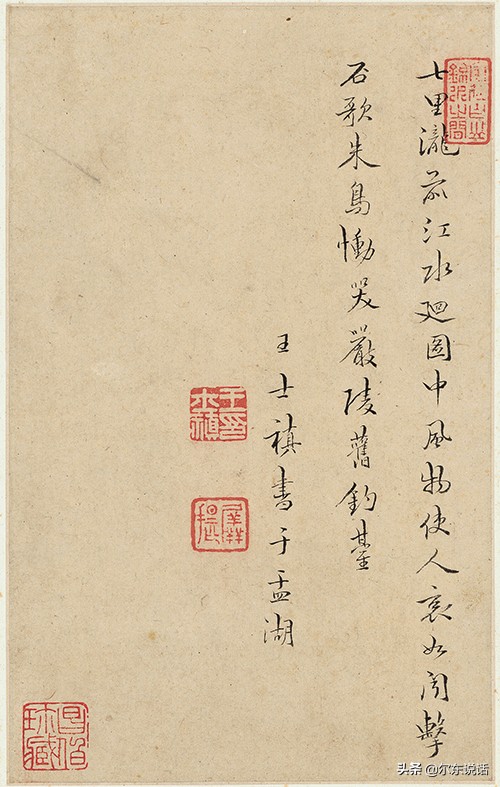 七里瀧前江水廻圖中風物使人哀如聞擊
石歌朱鳥慟哭嚴陵舊釣臺
王士禛書于盂湖
头条 @尔东说话